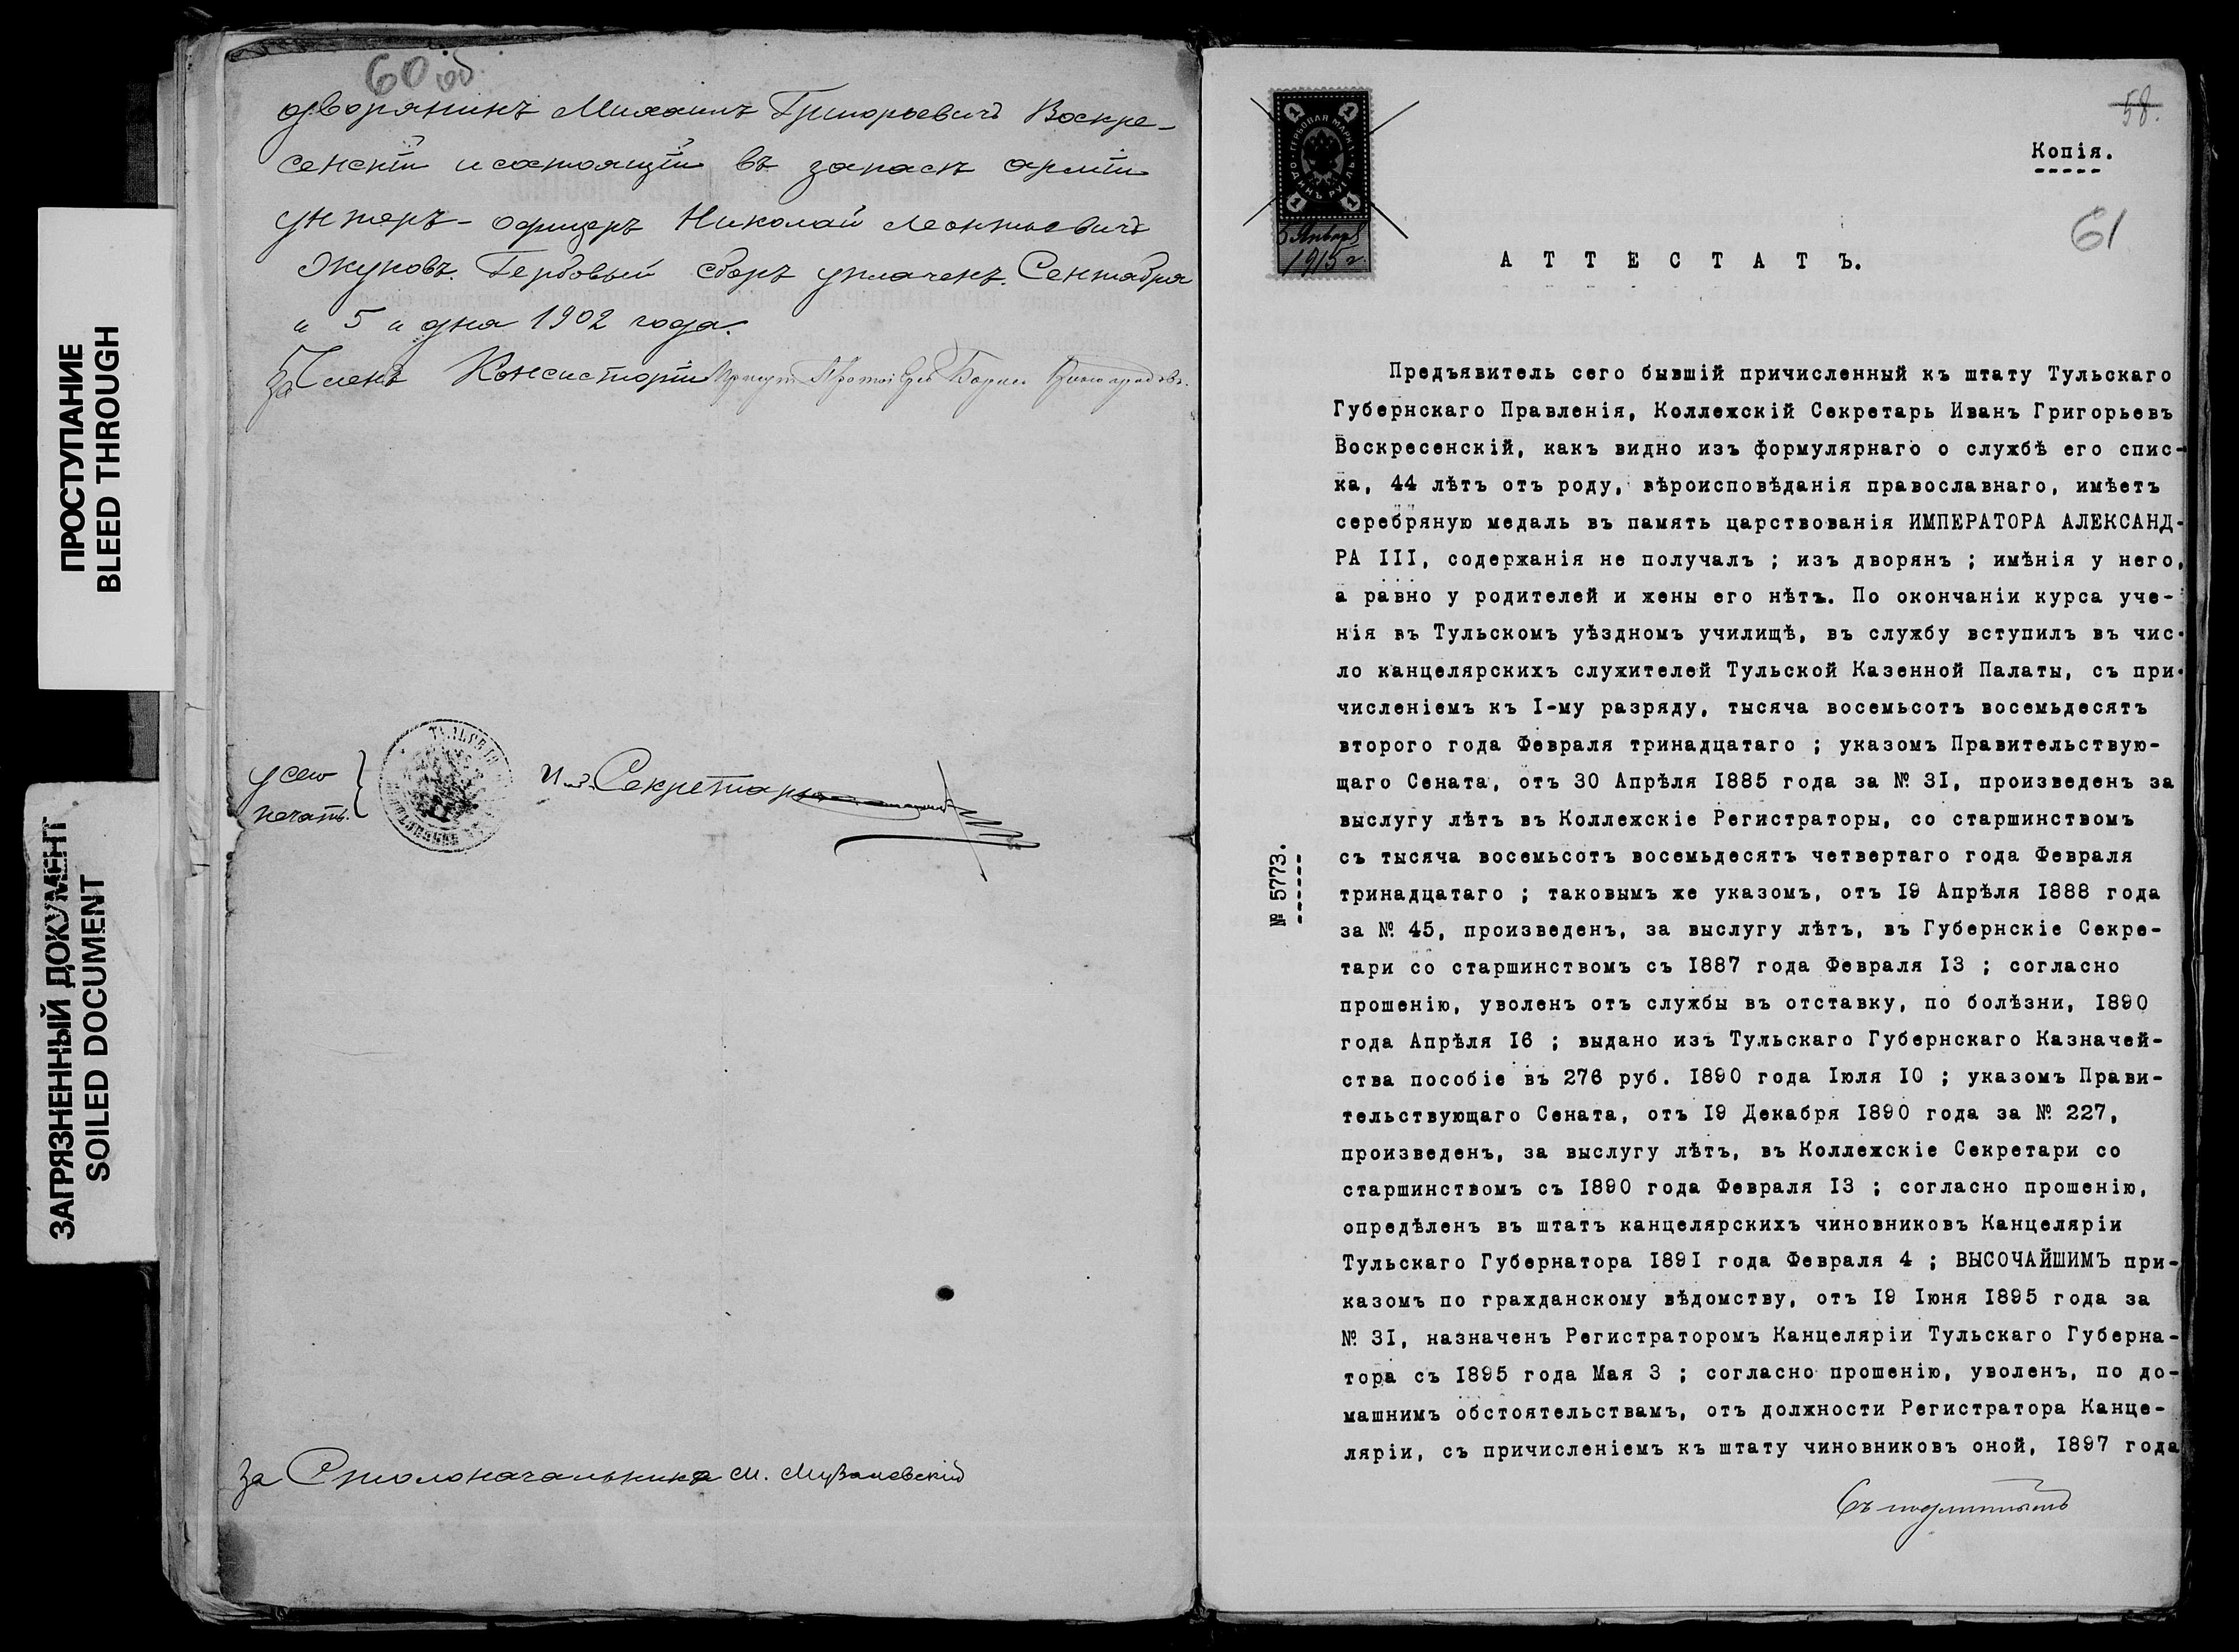 ПРОСТУПАНИЕ
BLEED THROUGH
ЗАГРЯЗНЕННЫЙ ДОКУМЕНТ
SOILED DOCUMENT
60 об
дворянинъ Михаилъ Григорьевичъ Воскре-
сенскiй и состоящiй въ запасѣ армiи
унтеръ-офицеръ Николай Леонтьевичъ
Жуковъ. Гербовый сборъ уплаченъ. Сентября
" 5 " дня 1902 года.
За Членъ Консисторiи Протоiерей
У сего
печать.
И. д. Секретаря
За Столоначальника М.
58.
Копiя.
61
ГЕРБОВАЯ МАРКА
ОДИНЪ РУБЛЬ
1 1 1 1
5 Января
1915 г.
АТТЕСТАТЪ.
№ 5773.
Предъявитель сего бывшiй причисленный къ штату Тульскаго
Губернскаго Правленiя, Коллежскiй Секретарь Иванъ Григорьевъ
Воскресенскiй, какъ видно изъ формулярнаго о службѣ его спис-
ка, 44 лѣтъ отъ роду, вѣроисповѣданiя православнаго, имѣетъ
серебряную медаль въ память царствованiя ИМПЕРАТОРА АЛЕКСАНД-
РА III, содержанiя не получалъ ; изъ дворянъ ; имѣнiя у него,
а равно у родителей и жены его нѣтъ. По окончанiи курса уче-
нiя въ Тульскомъ уѣздномъ училищѣ, въ службу вступилъ въ чис-
ло канцелярскихъ служителей Тульской Казенной Палаты, съ при-
численiемъ къ I-му разряду, тысяча восемьсотъ восемьдесятъ
второго года Февраля тринадцатаго ; указомъ Правительствую-
щаго Сената, отъ 30 Апрѣля 1885 года за № 31, произведенъ за
выслугу лѣтъ въ Коллежскiе Регистраторы, со старшинствомъ
съ тысяча восемьсотъ восемьдесятъ четвертаго года Февраля
тринадцатаго ; таковымъ же указомъ, отъ 19 Апрѣля 1888 года
за № 45, произведенъ, за выслугу лѣтъ, въ Губернскiе Секре-
тари со старшинствомъ съ 1887 года Февраля 13 ; согласно
прошенiю, уволенъ отъ службы въ отставку, по болѣзни, 1890
года Апрѣля 16 ; выдано изъ Тульскаго Губернскаго Казначей-
ства пособiе въ 276 руб. 1890 года Iюля 10 ; указомъ Прави-
тельствующаго Сената, отъ 19 Декабря 1890 года за № 227,
произведенъ, за выслугу лѣтъ, въ Коллежскiе Секретари со
старшинствомъ съ 1890 года Февраля 13 ; согласно прошенiю,
опредѣленъ въ штатъ канцелярскихъ чиновниковъ Канцелярiи
Тульскаго Губернатора 1891 года Февраля 4 ; ВЫСОЧАЙШИМЪ при-
казомъ по гражданскому вѣдомству, отъ 19 Iюня 1895 года за
№ 31, назначенъ Регистраторомъ Канцелярiи Тульскаго Губерна-
тора съ 1895 года Мая 3 ; согласно прошенiю, уволенъ, по до-
машнимъ обстоятельствамъ, отъ должности Регистратора Канце-
лярiи, съ причисленiемъ къ штату чиновниковъ оной, 1897 года
Съ подлиннымъ